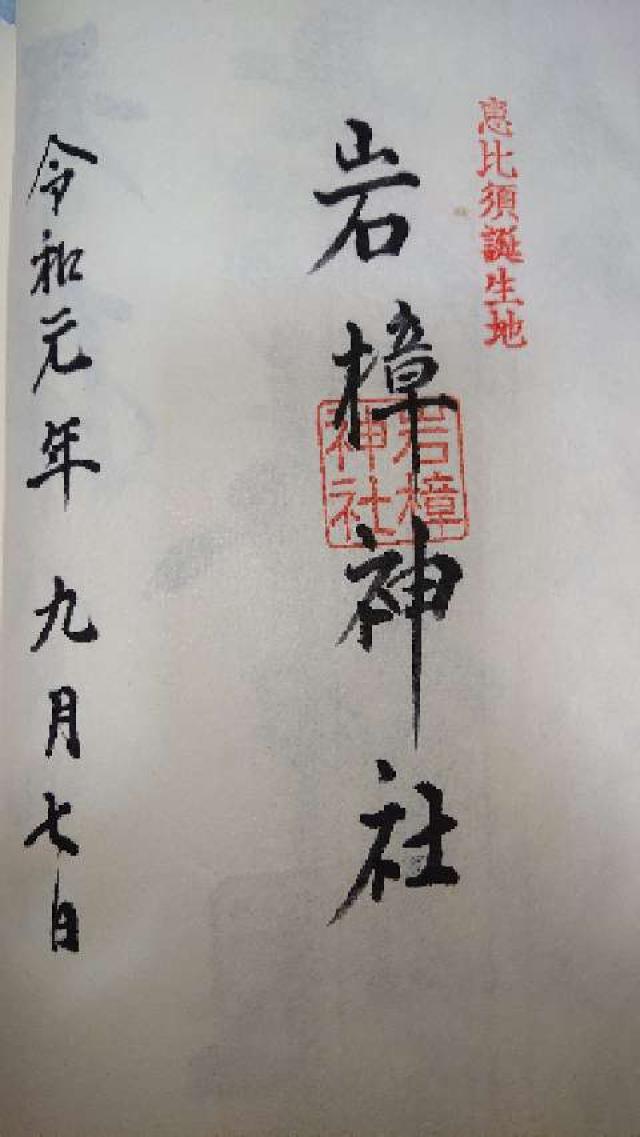 恵比須誕生地
岩樟神社
岩樟
神社
令和元年九月七日